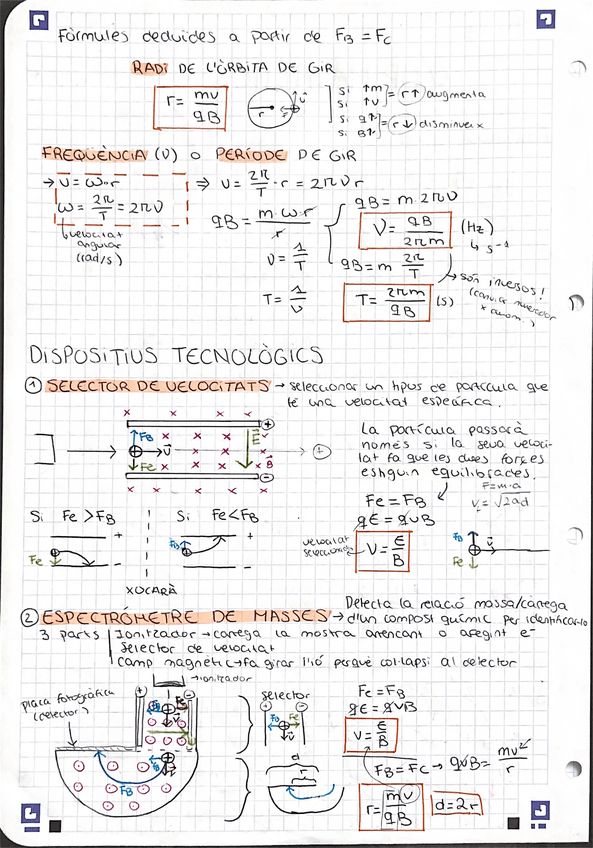 Fórmules deduïdes a partir de FB = FC
RADI DE L'ÒRBITA DE GIR
r = mv / qB
si ↑m
si ↑v ] = r↑ augmenta
si q↑
si B↑ ] = r↓ disminueix
FREQÜÈNCIA (ν) o PERÍODE DE GIR
→ v = ω·r ⇒ v = 2π/T · r = 2πνr
ω = 2π/T = 2πν
velocitat
angular
(rad/s)
qB = m·ω·r / r
qB = m·2πν
ν = qB / 2πm (Hz)
↳ s⁻¹
ν = 1/T
qB = m 2π/T
→ són inversos!
T = 1/ν
T = 2πm / qB (s)
DISPOSITIUS TECNOLÒGICS
① SELECTOR DE VELOCITATS → seleccionar un tipus de partícula que
té una velocitat específica.
FB v Fe E B + −
La partícula passarà
només si la seva veloci-
tat fa que les dues forces
estiguin equilibrades.
F=m·a
Fe = FB
v = √2ad
qE = qvB
velocitat
v = E/B
FB
Fe
Si Fe > FB
Si Fe < FB
Fe + −
FB + −
XOCARÀ
② ESPECTRÒMETRE DE MASSES → Detecta la relació massa/càrrega
d'un compost químic per identificar-lo
3 parts
Ionitzador → carrega la mostra arrencant o afegint e⁻
Selector de velocitat
Camp magnètic → fa girar l'ió perquè col·lapsi al detector
→ ionitzador
placa fotogràfica
(detector)
+ −
FB Fe v
FB
selector
+ −
FB Fe
v
d
r
Fe = FB
qE = qvB
v = E/B
FB = FC → qvB = mv² / r
r = mv / qB
d = 2r